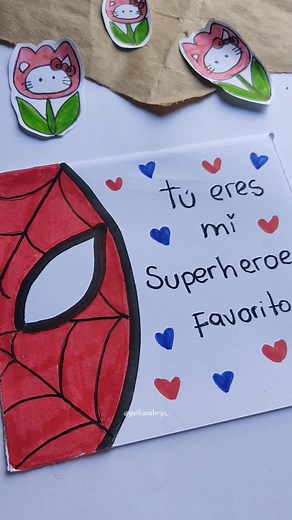 tú eres
mi
Superheroe
Favorito